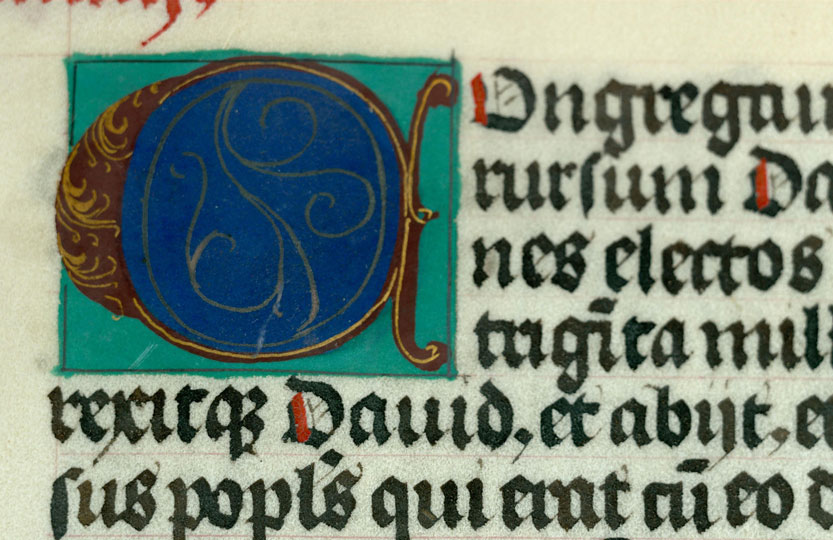 COngregauit
rursum Da
nes electos
trigīta mill
rexitqꝫ Dauid, et abijt, e
sus popl̃s qui erāt cū eo d